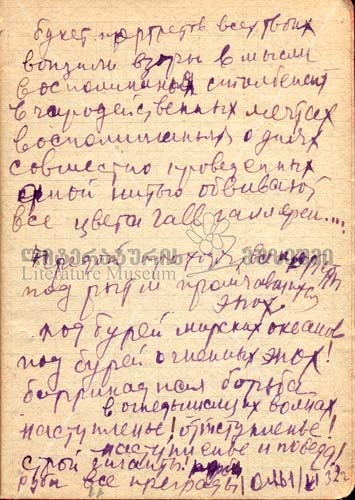 букет портретов всех твоих
вонзили взоры в мысли
воспоминанья
в чародейственных мечтах
воспоминанья о днях
совместно проведенных
одной нитью обвивают
все цвета галлереи....
ლიტერატურის მუზეუმი
Literature Museum
под рыти промчавшихся
эпох
под бурей мирских океанов
под бурей огненных эпох!
баррикадная борьба
в огнедышащих волнах
наступленье! отступленье!
наступленье и победа!
строй гигантъ!
руби все преграды 32 г